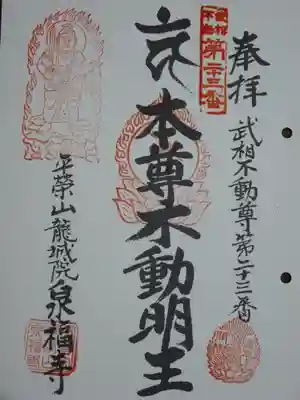 奉拝
武相不動尊第二十三番
第二十三番
本尊不動明王
平榮山龍城院泉福寺